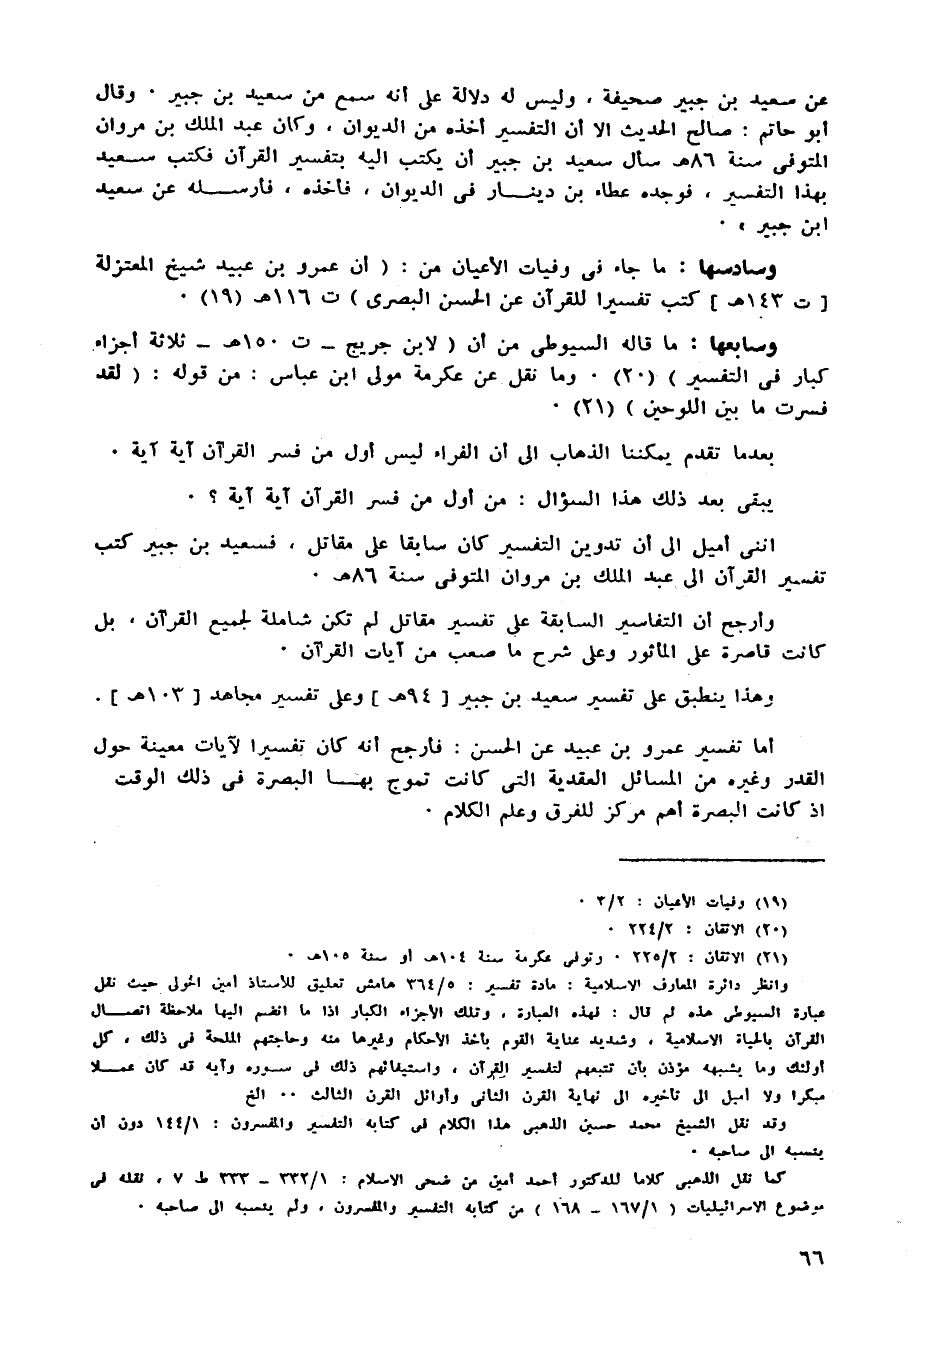 عن سعيد بن جبير صحيفة ، وليس له دلالة على أنه سمع من سعيد بن جبير ٠ وقال
أبو حاتم : صالح الحديث الا أن التفسير أخذه من الديوان ، وكان عبد الملك بن مروان
المتوفى سنة ٨٦هـ سأل سعيد بن جبير أن يكتب اليه بتفسير القرآن فكتب سعيد
بهذا التفسير ، فوجده عطاء بن دينار فى الديوان ، فأخذه ، فأرسله عن سعيد
ابن جبير » ٠
وسادسها : ما جاء فى وفيات الأعيان من : ( أن عمرو بن عبيد شيخ المعتزلة
[ ت ١٤٣هـ ] كتب تفسيرا للقرآن عن الحسن البصرى ) ت ١١٦هـ (١٩) ٠
وسابعها : ما قاله السيوطى من أن ( لابن جريج ـ ت ١٥٠هـ ـ ثلاثة أجزاء
كبار فى التفسير ) (٢٠) ٠ وما نقل عن عكرمة مولى ابن عباس : من قوله : ( لقد
فسرت ما بين اللوحين ) (٢١) ٠
بعدما تقدم يمكننا الذهاب الى أن الفراء ليس أول من فسر القرآن آية آية ٠
يبقى بعد ذلك هذا السؤال : من أول من فسر القرآن آية آية ؟ ٠
اننى أميل الى أن تدوين التفسير كان سابقا على مقاتل ، فسعيد بن جبير كتب
تفسير القرآن الى عبد الملك بن مروان المتوفى سنة ٨٦هـ ٠
وأرجح أن التفاسير السابقة على تفسير مقاتل لم تكن شاملة لجميع القرآن ، بل
كانت قاصرة على المأثور وعلى شرح ما صعب من آيات القرآن ٠
وهذا ينطبق على تفسير سعيد بن جبير [ ٩٤هـ ] وعلى تفسير مجاهد [ ١٠٣هـ ] ٠
أما تفسير عمرو بن عبيد عن الحسن : فأرجح أنه كان تفسيرا لآيات معينة حول
القدر وغيره من المسائل العقدية التى كانت تموج بها البصرة فى ذلك الوقت
اذ كانت البصرة أهم مركز للفرق وعلم الكلام ٠
(١٩) وفيات الأعيان : ٣/٢ ٠
(٢٠) الاتقان : ٢٢٤/٢ ٠
(٢١) الاتقان : ٢٢٥/٢ ٠ وتوفى عكرمة سنة ١٠٤هـ أو سنة ١٠٥هـ ٠
وانظر دائرة المعارف الاسلامية : مادة تفسير : ٣٦٤/٥ هامش تعليق للأستاذ أمين الخولى حيث نقل
عبارة السيوطى هذه ثم قال : فهذه العبارة ، وتلك الأجزاء الكبار اذا ما انضم اليها ملاحظة اتصال
القرآن بالحياة الاسلامية ، وشديد عناية القوم بأخذ الأحكام وغيرها منه وحاجتهم الملحة فى ذلك ، كل
أولئك وما يشبهه مؤذن بأن تتبعهم لتفسير القرآن ، واستيفائهم ذلك فى سوره وآيه قد كان عملا
مبكرا ولا أميل الى تأخيره الى نهاية القرن الثانى وأوائل القرن الثالث ٠٠ الخ
وقد نقل الشيخ محمد حسين الذهبى هذا الكلام فى كتابه التفسير والمفسرون : ١٤٤/١ دون أن
ينسبه الى صاحبه ٠
كما نقل الذهبى كلاما للدكتور أحمد أمين من ضحى الاسلام : ٣٣٢/١ ـ ٣٣٣ ط ٧ ، نقله فى
موضوع الاسرائيليات ( ١٦٧/١ ـ ١٦٨ ) من كتابه التفسير والمفسرون ، ولم ينسبه الى صاحبه ٠
٦٦